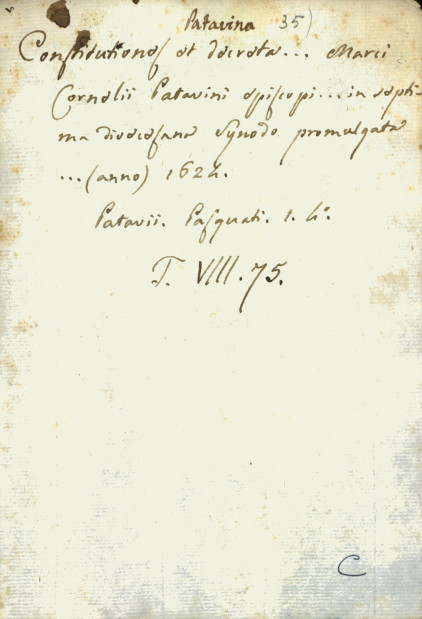 Patavina 35)
Constitutiones et decreta... Marci
Cornelii Patavini episcopi... in septi-
ma diocesana Synodo promulgata
...(anno) 1624.
Patavii. Pasquati. 1. 4°.
T. VIII. 75.
C